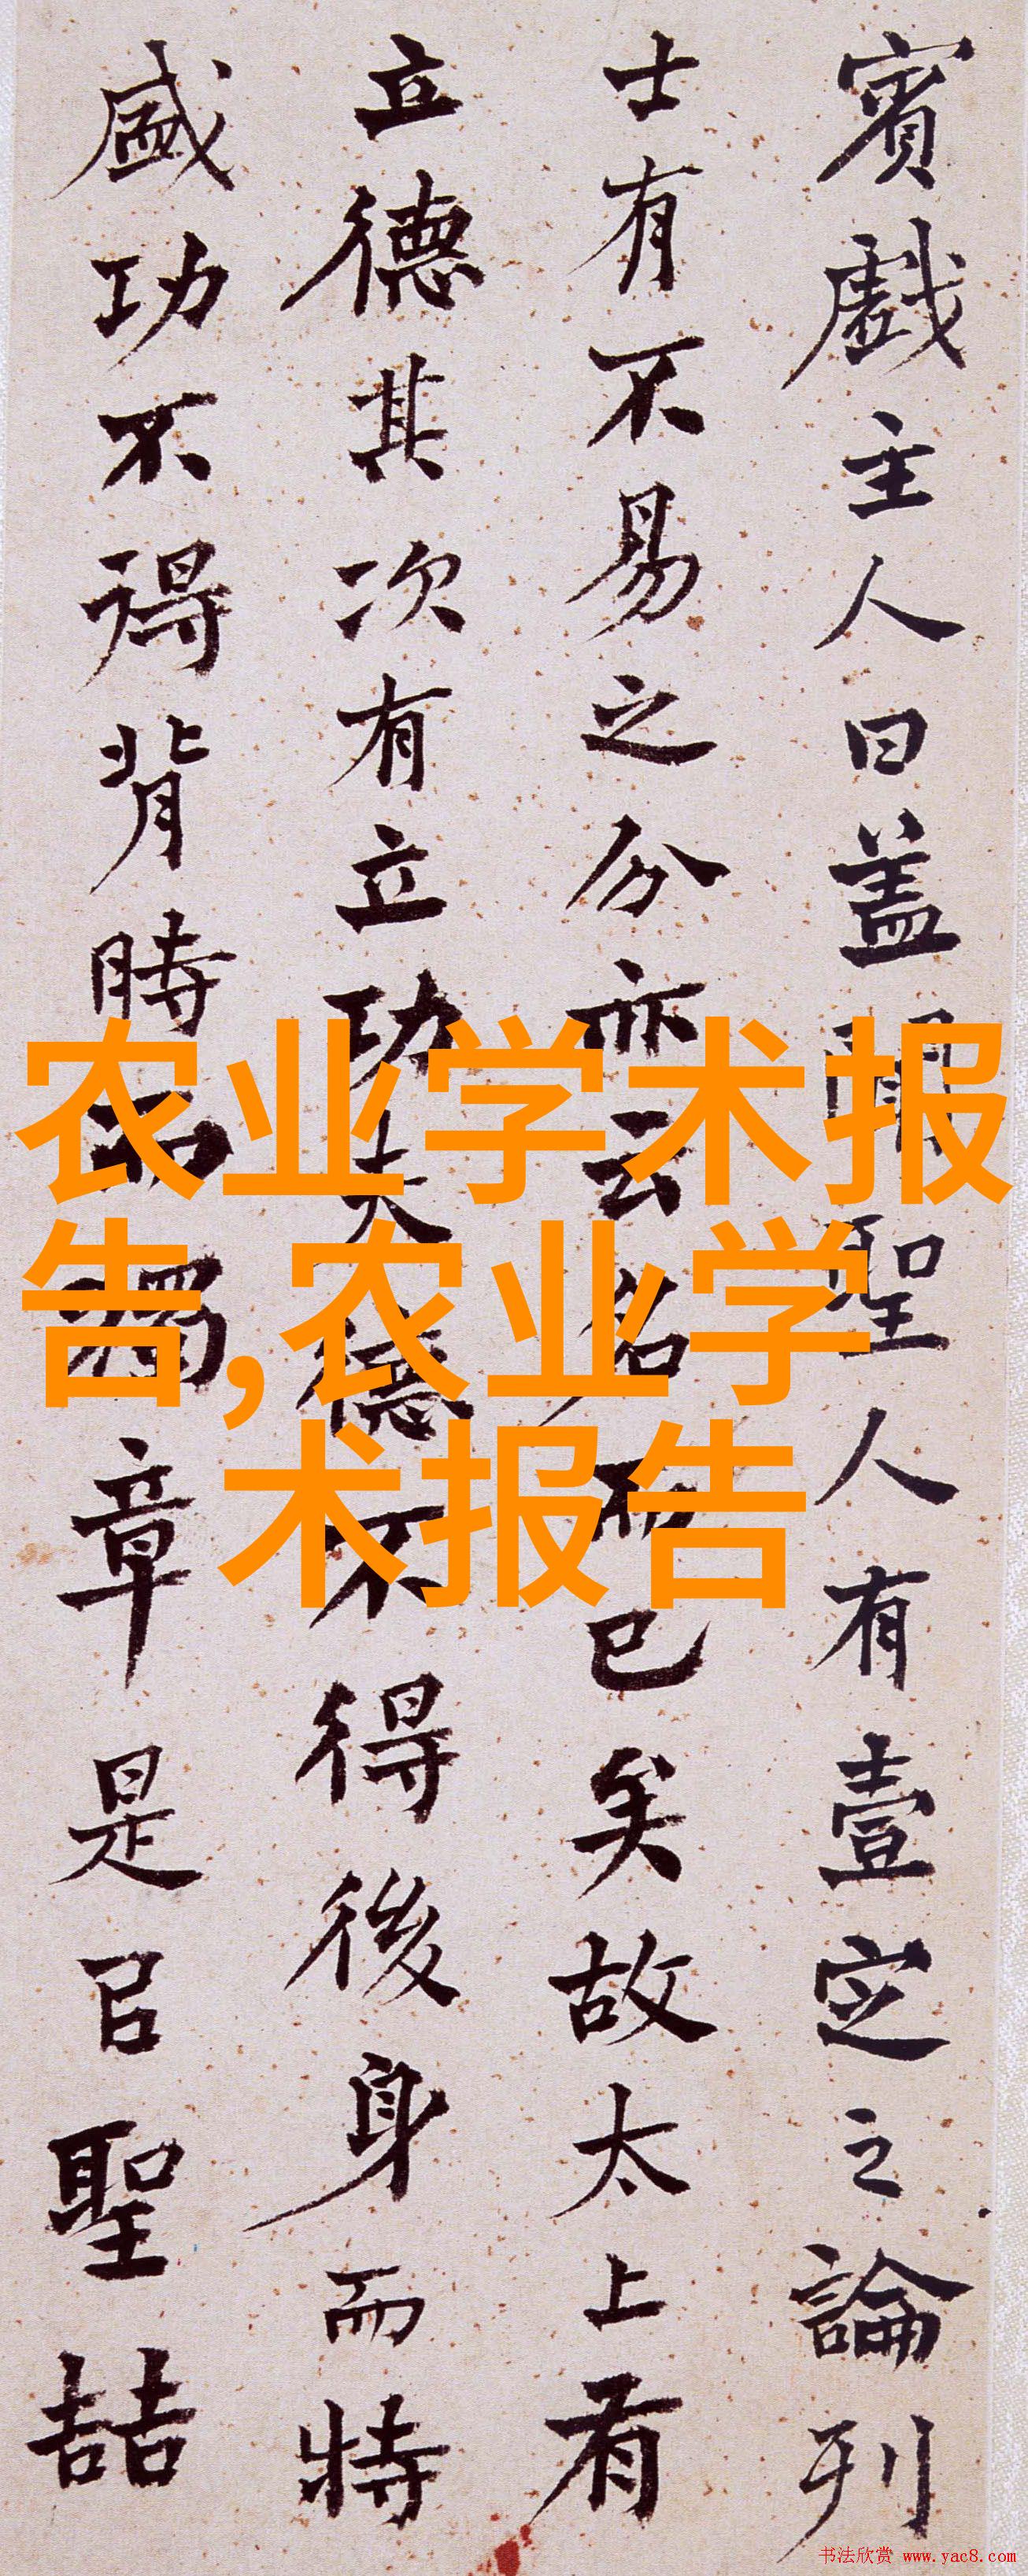 賓戲主人曰盖聞聖人有壹定之論列
士有不易之分亦云名而已矣故太上有
立德其次有立功夫德不得後身而特
盛功不得背時而獨章是㠯聖喆
农业学术报
告,农业学
术报告
书法欣赏 www.yac8.com